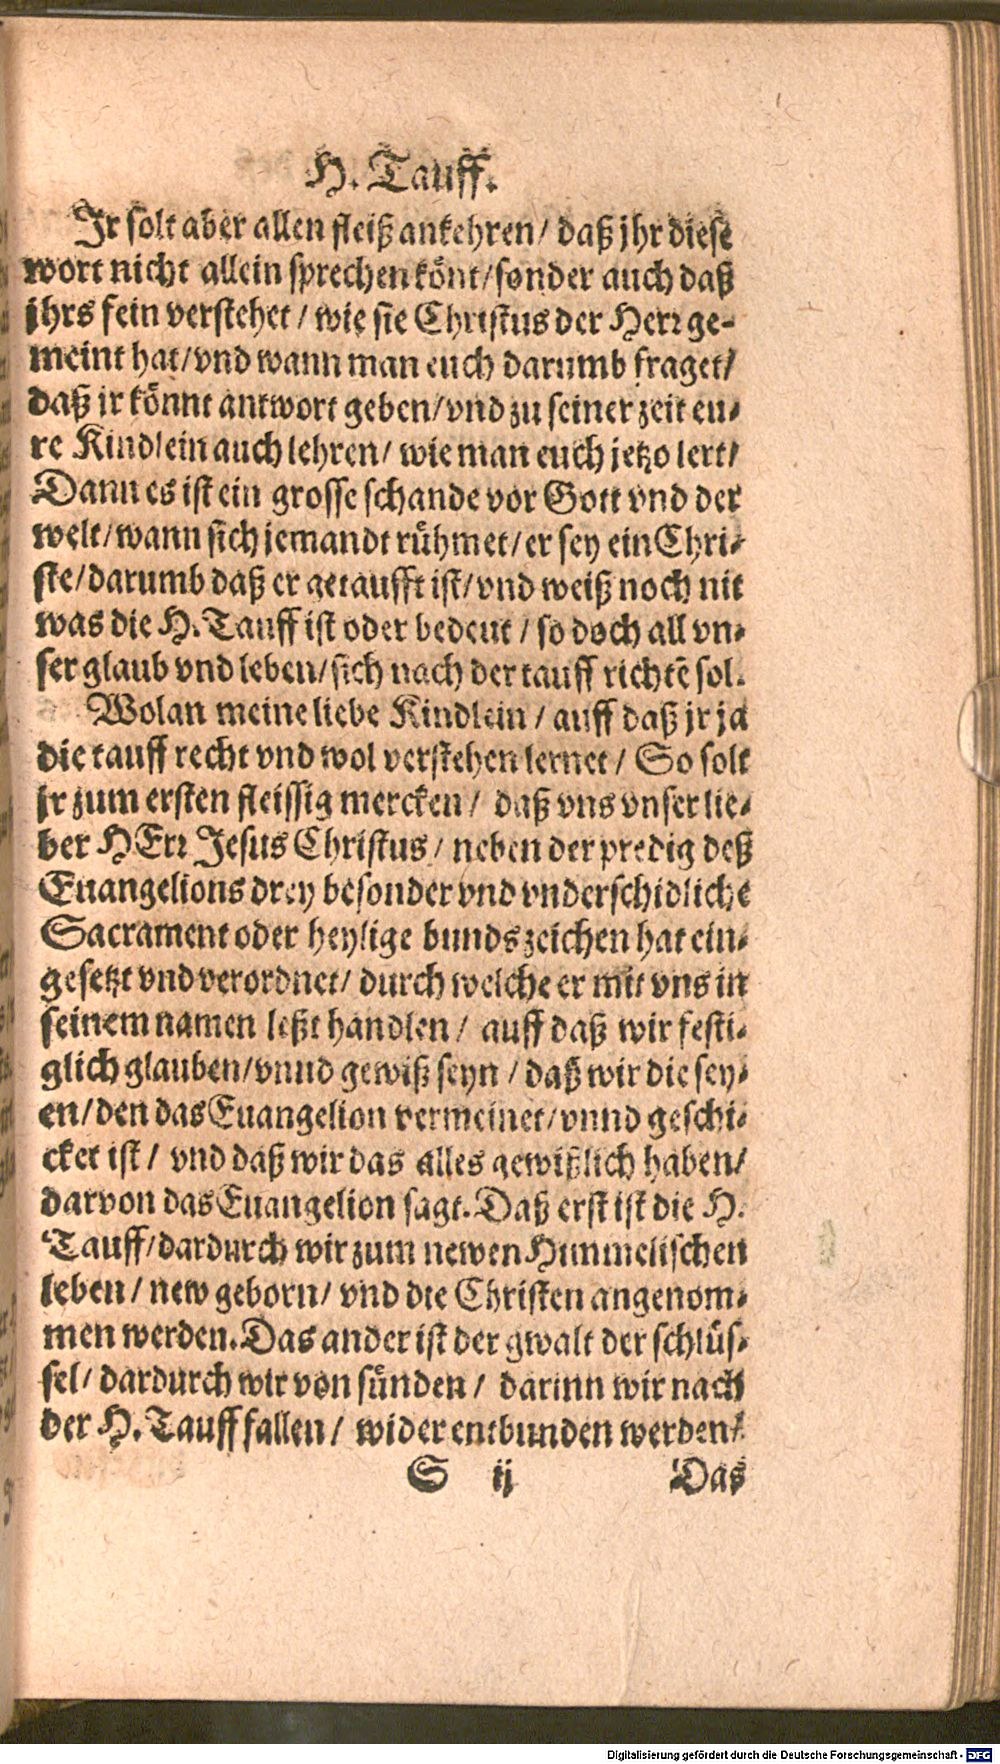 H. Tauff.
Ir solt aber allen fleiß ankehren/ daß jhr diese
wort nicht allein sprechen könt/ sonder auch daß
jhrs fein verstehet/ wie sie Christus der Herr ge-
meint hat/ vnd wann man euch darumb fraget/
daß ir könnt antwort geben/ vnd zu seiner zeit eu-
re Kindlein auch lehren/ wie man euch jetzo lert/
Dann es ist ein grosse schande vor Gott vnd der
welt/ wann sich jemandt rühmet/ er sey ein Chri-
ste/ darumb daß er getaufft ist/ vnd weiß noch nit
was die H. Tauff ist oder bedeut/ so doch all vn-
ser glaub vnd leben/ sich nach der tauff richtē sol.
Wolan meine liebe Kindlein/ auff daß jr ja
die tauff recht vnd wol verstehen lernet/ So solt
jr zum ersten fleissig mercken/ daß vns vnser lie-
ber HErr Jesus Christus/ neben der predig deß
Euangelions drey besonder vnd vnderschidliche
Sacrament oder heylige bundszeichen hat ein-
gesetzt vnd verordnet/ durch welche er mit vns in
seinem namen leßt handlen/ auff daß wir festi-
glich glauben/ vnnd gewiß seyn/ daß wir die sey-
en/ den das Euangelion vermeinet/ vnnd geschi-
cket ist/ vnd daß wir das alles gewißlich haben/
darvon das Euangelion sagt. Daß erst ist die H.
Tauff/ dardurch wir zum newen Himmelischen
leben/ new geborn/ vnd die Christen angenom-
men werden. Das ander ist der gwalt der schlüs-
sel/ dardurch wir von sünden/ darinn wir nach
der H. Tauff fallen/ wider entbunden werden/
S ij Das
Digitalisierung gefördert durch die Deutsche Forschungsgemeinschaft - DFG